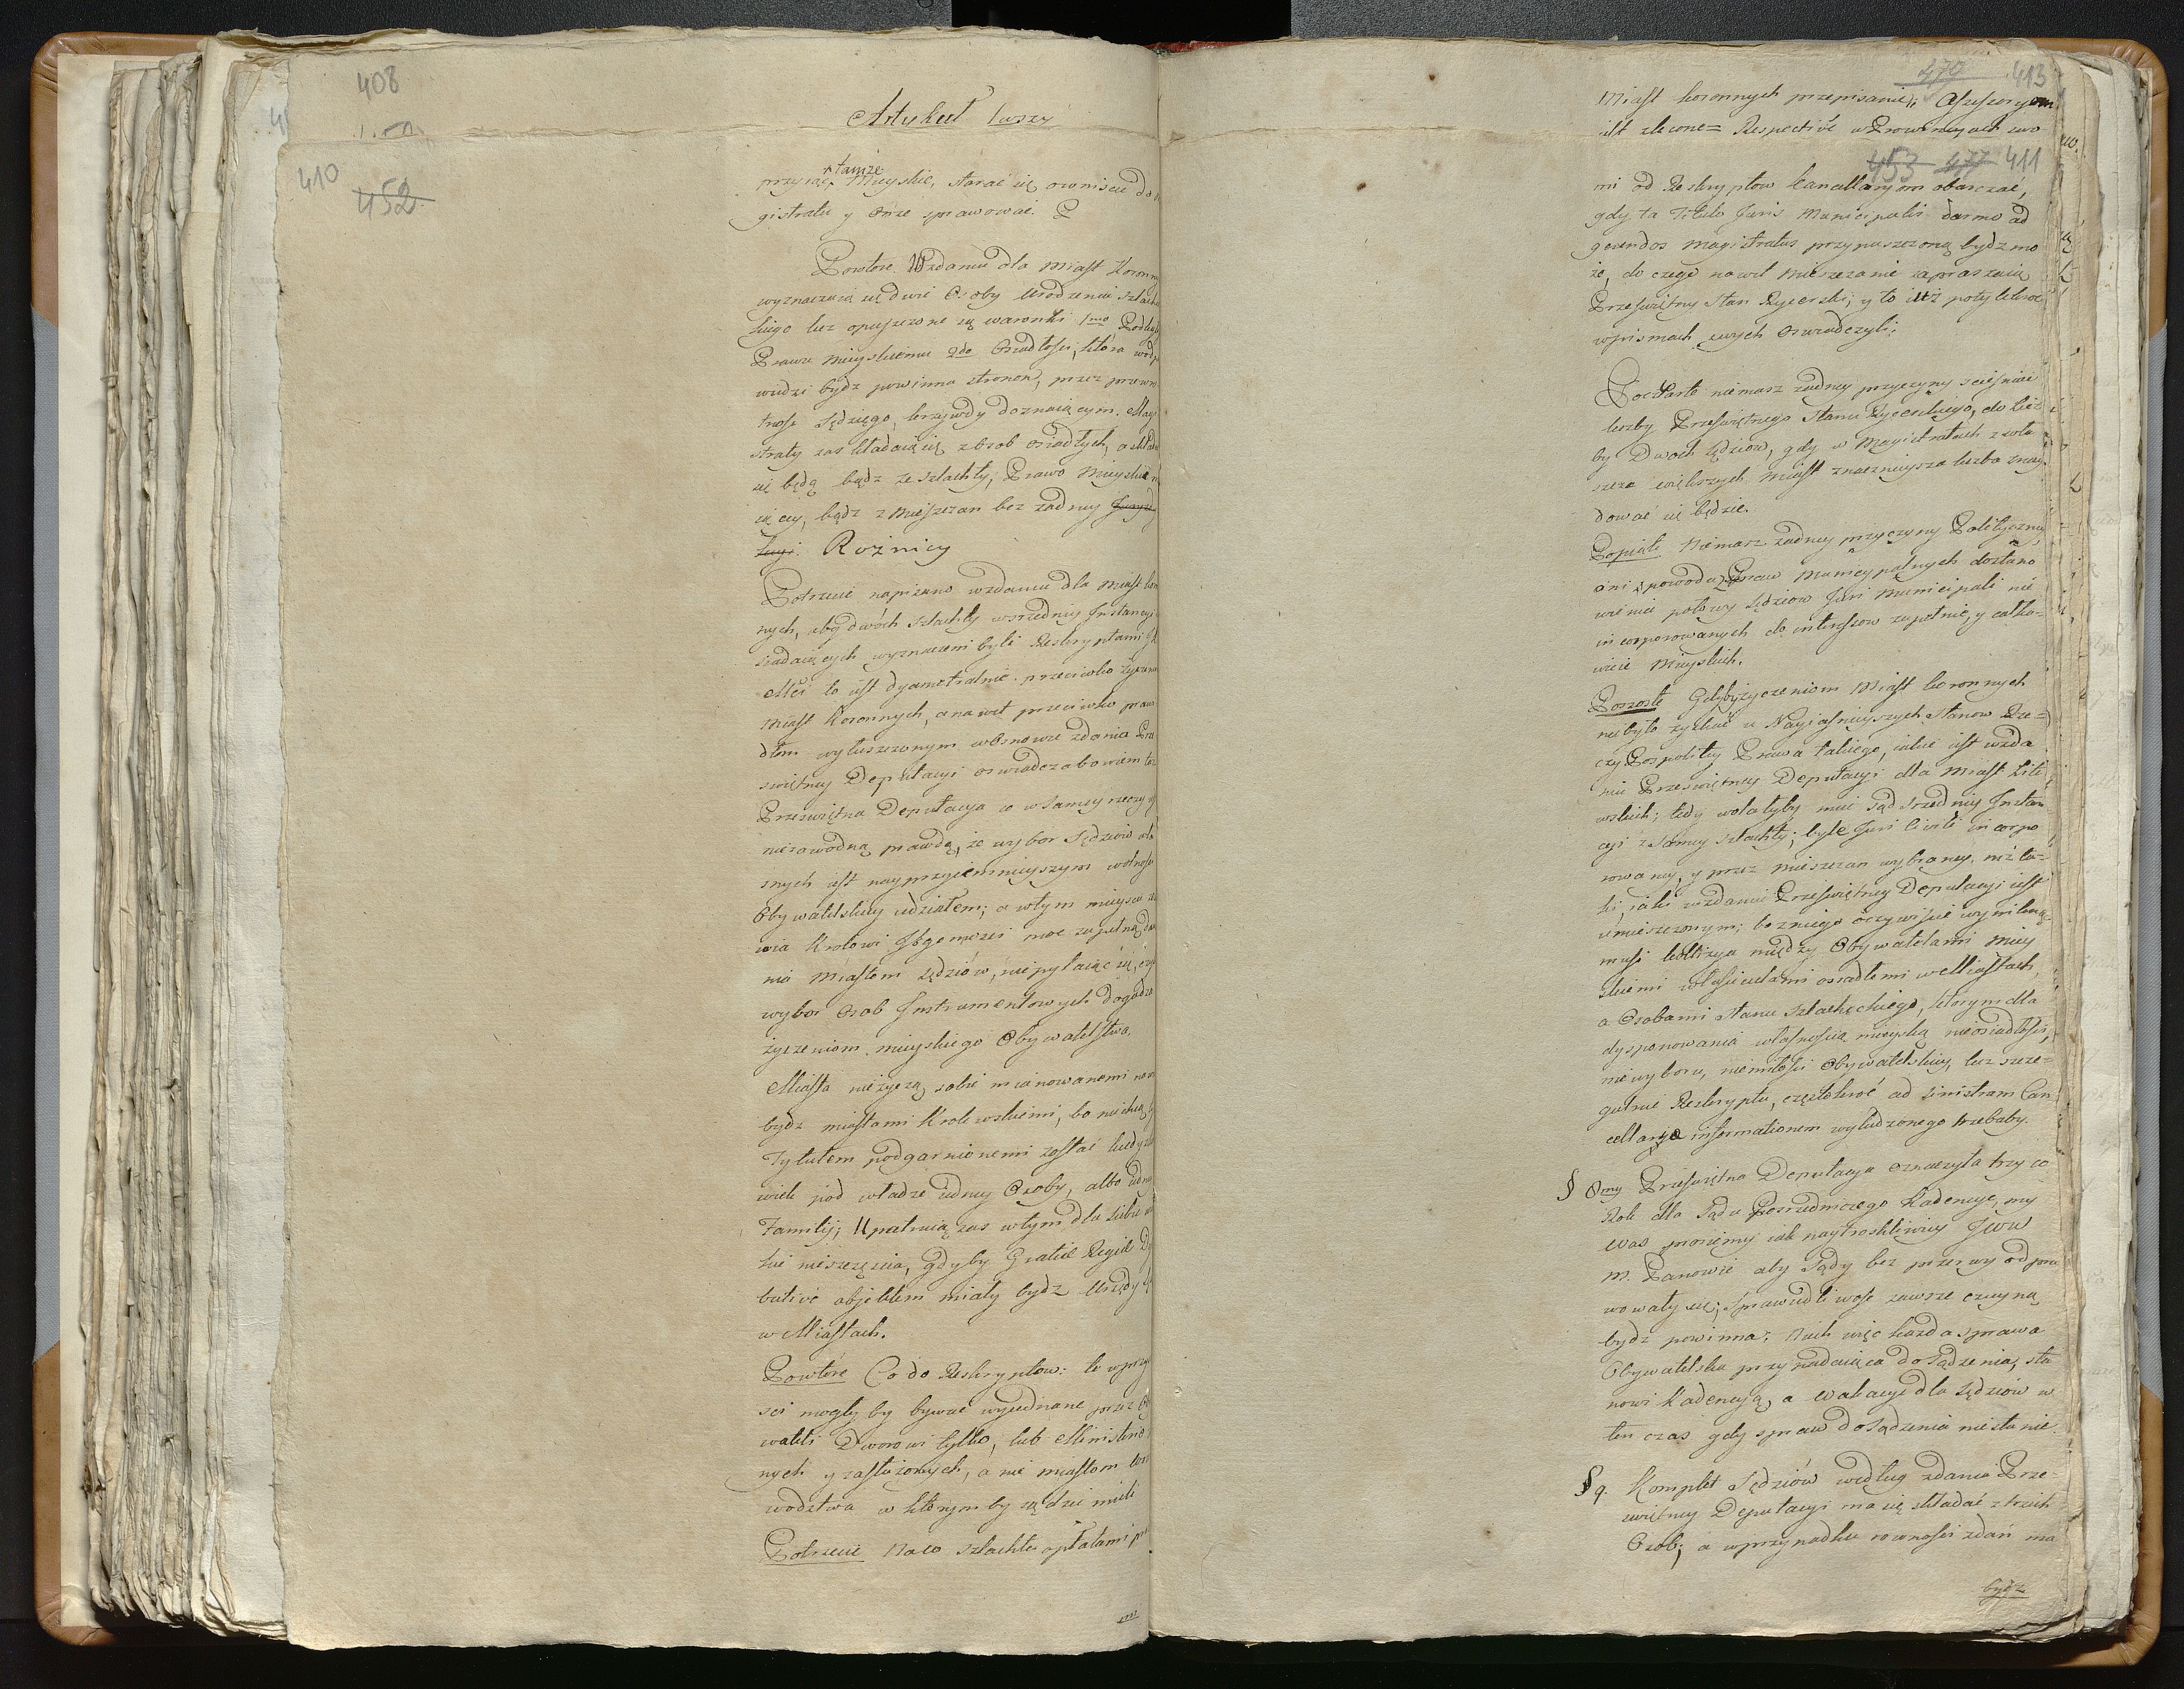 408
Artykuł 1wszy
410
452
tamże
przyiąć Mieyskie, starać się o wniście do
gistratu y onże sprawować.
Powtore W zdaniu dla Miast Koronn
wyznaczaią się dwie Osoby Urodzenia szlache
kiego lecz opuszczone są warunki 1mo Podległ
Prawu mieyskiemu 2do Osiadłości, która
widzi bydz powinna stronom, przez
ność Sędziego, krzywdy doznaiącym. Magi
straty zas składaią się z osob osiadłych, a składa
się będą bądz ze szlachty, Prawo Mieyskie
iącey, bądz z Mieszczan bez żadney
Rożnicy
Potrzecie napisano w zdaniu dla Miast
nych, aby dwóch szlachty w sredniey Instancyi
siadaiących wyznaczeni byli Reskryptami
Mci to iest dyametralnie przeciwko życzeniu
Miast Koronnych, a nawet przeciwko praw
dłom wyłuszczonym w osnowie zdania Prze
swiętney Deputacyi oswiadcza bowiem też
Prześwietna Deputacya co w samey rzeczy
niezawodną prawdą, że wybor Sędziów
snych iest nayprzyiemnieyszym wolności
Obywatelskiey udziałem; a w tym mieyscu
wia Krolowi Jegomości moc zupełną
nia Miastom Sędziów, nie pytaiąc się, czy
wybor Osob Instrumentowych dogadza
życzeniom mieyskiego Obywatelstwa.
Miasta nieżyczą sobie mianowanemi
bydz miastami Krolewskiemi, bo nie chcą
Tytułem podgarnionemi zostać kiedy
wiek pod władze iedney Osoby, albo iedney
Familij; Upatruią zas w tym dla siebie
kie nieszczęscia, gdyby Gratiæ Regiæ
butivæ objektem miały bydz Urzędy
w Miastach.
Powtóre Co do Reskryptow: te w przy
sci mogły by bywać wyiednane przez
wateli Dworowi tylko, lub Ministrów
nych y zasłużonych, a nie miastom
wodztwa w którym by sądzić mieli
Potrzecie Na co szlachtę opłatami
mi
479 413
Miast koronnych przepisanie, Assessoryom
iest zlecone= Respective w Prowincyach swo
453 477 411
mi od Reskryptow kancellaryom obarczać,
gdy ta Titulo Juris Municipalis darmo ad
gerendos Magistratus przypuszczoną bydz mo
że, do czego nawet Mieszczanie zapraszaią
Prześwietny Stan Rycerski; y to iuż potylekroć
w pismach swych oswiadczyli.
Poczwarte niemasz żadney przyczyny scieśniać
liczby Prześwietnego Stanu Rycerskiego, do licz
by Dwoch Sędziów, gdy w Magistratach zwła
szcza większych Miast znacznieysza liczba znay
dować się będzie.
Popiąte Niemasz żadney przyczyny Polityczney
ani z powodu Praw Municypalnych dostano
wienie połowy Sędziow Juri Municipali nie
incorporowanych do interessow zupełnie, y całko=
wicie Mieyskich.
Poszoste Gdyby życzeniem Miast koronnych
niebyło zyskać u Nayiaśnieyszych Stanow Rze=
czyPospolitey Prawa takiego, iakie iest w zda
niu Prześwietney Deputacyi dla Miast Lite
wskich; tedy wolałyby mieć Sąd sredniey Instan
cyi z samey szlachty; byle Juri Civili incorpo
rowaney, y przez mieszczan wybraney, niż ta=
ki, iaki w zdaniu Prześwietney Deputacyi iest
umieszczonym; bo z niego oczywiście wyniknąć
musi kollizya między Obywatelami Miey
skiemi właścicielami osiadłemi w Miastach,
a Osobami stanu szlacheckiego, którym dla
dysponowania własnością mieyską nie osiadłości,
nie wyboru, nie miłości Obywatelskiey, lecz szcze=
gulnie Reskryptu, częstokroć ad sinistram Can
cellariæ informationem wyłudzonego trzebaby.
§ 8my Prześwietna Deputacya oznaczyła trzy co
Rok dla Sądu Pośredniczego Kadencye, my
Was prosiemy iak naytroskliwiey JWW
M. Panowie aby Sądy bez przerwy odpra
wowały się; Sprawiedliwość zawsze czynną
bydz powinna; Niech więc każda sprawa
Obywatelska przypadaiąca do sądzenia, sta
nowi Kadencyą, a Wakacye dla Sędziów w
ten czas gdy spraw do sądzenia niestanie.
§ 9. Komplet Sędziów według zdania Prze=
swiętney Deputacyi ma się składać z trzech
Osob; a w przypadku rowności zdań ma
bydz